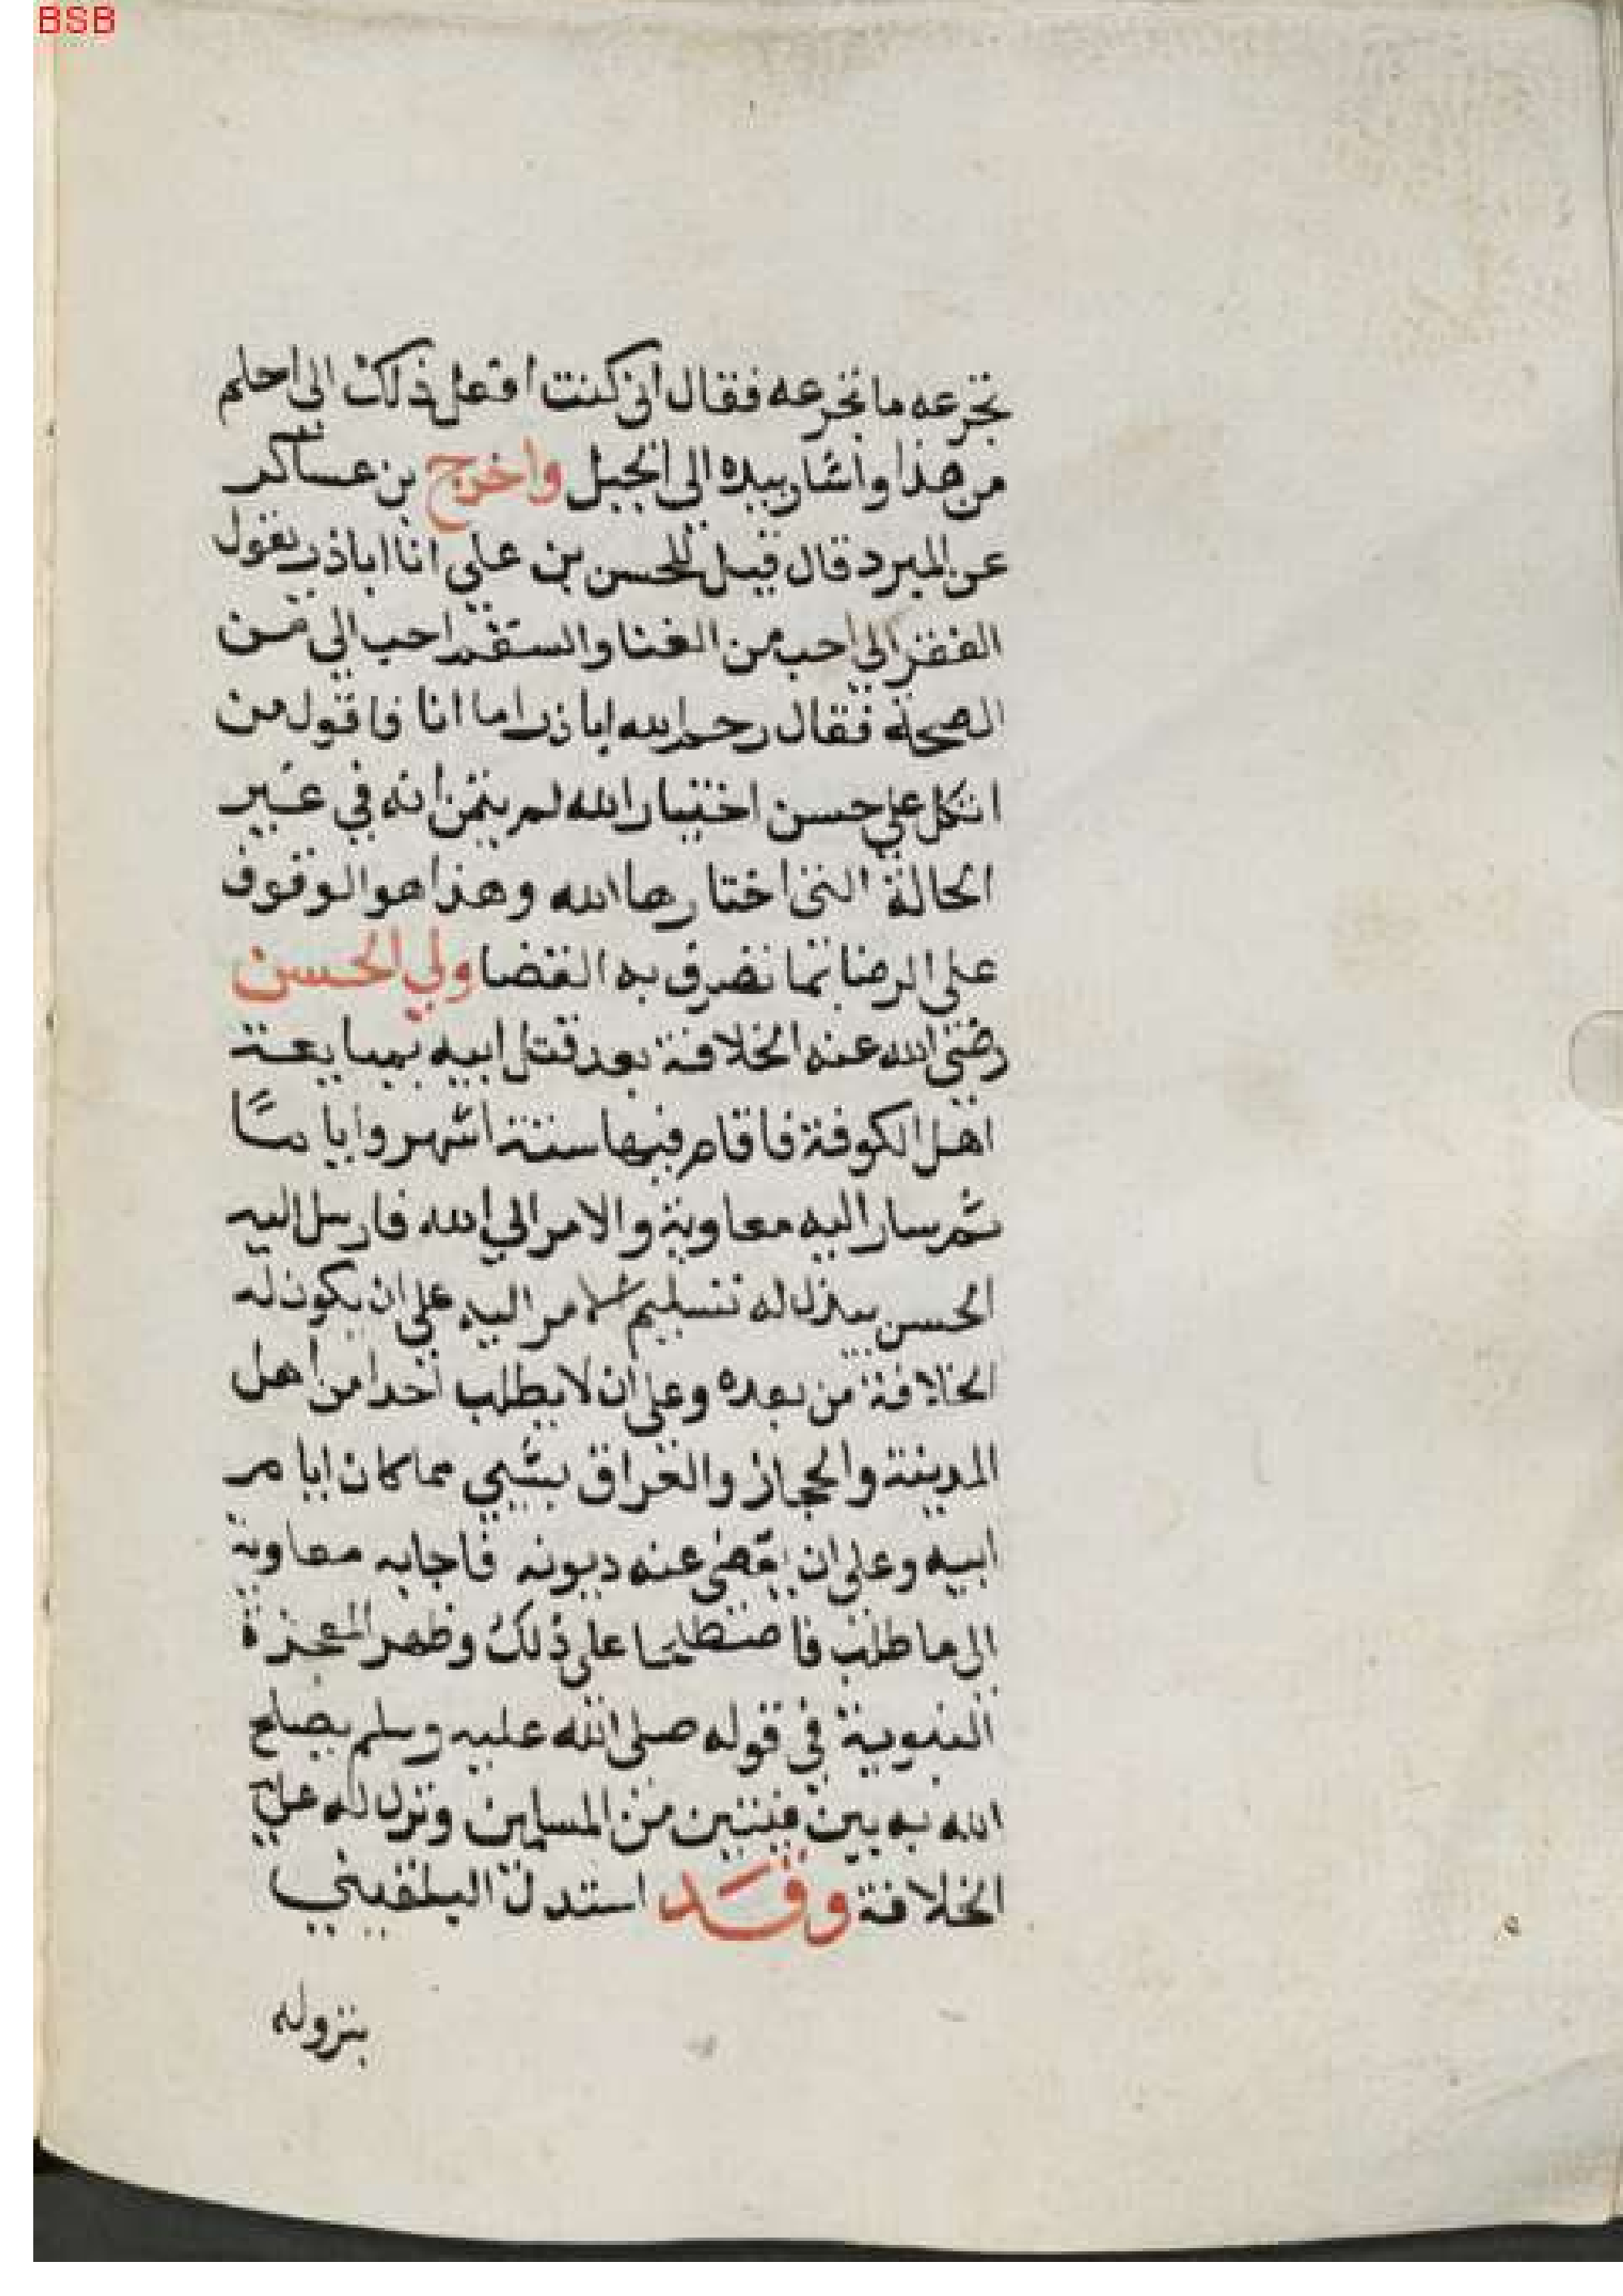 BSB
تجرعه ما تجرعه فقال انى كنت افعل ذلك الى احلم
من هذا واشار بيده الى الجبل واخرج بن عساكر
عن المبرد قال قيل للحسن بن على ان اباذر يقول
الفقر الى احب من الغنا والسقم احب الي من
الصحة فقال رحم الله اباذر اما انا فاقول من
اتكل على حسن اختيار الله لم يتمن انه في غير
الحالة التى اختارها الله وهذا هو الوقوف
على الرضا بما تصرف به القضا ولي الحسن
رضى الله عنه الخلافة بعد قتل ابيه بمبايعة
اهل الكوفة فاقام فيها ستة اشهر واياما
ثم سار اليه معاوية والامر الي الله فارسل اليه
الحسن ببذل له تسليم الامر اليه على ان يكون له
الخلافة من بعده وعلى ان لا يطلب احدا من اهل
المدينة والحجاز والعراق بشيي مما كان ايام
ابيه وعلى ان يقضى عنه ديونه فاجابه معاوية
الى ما طلب فاصطلحا على ذلك وظهر المعجزة
النبوية في قوله صلى الله عليه وسلم يصلح
الله به بين فئتين من المسلمين ونزل له على
الخلافة وقد استدل البلقيني
بنزوله